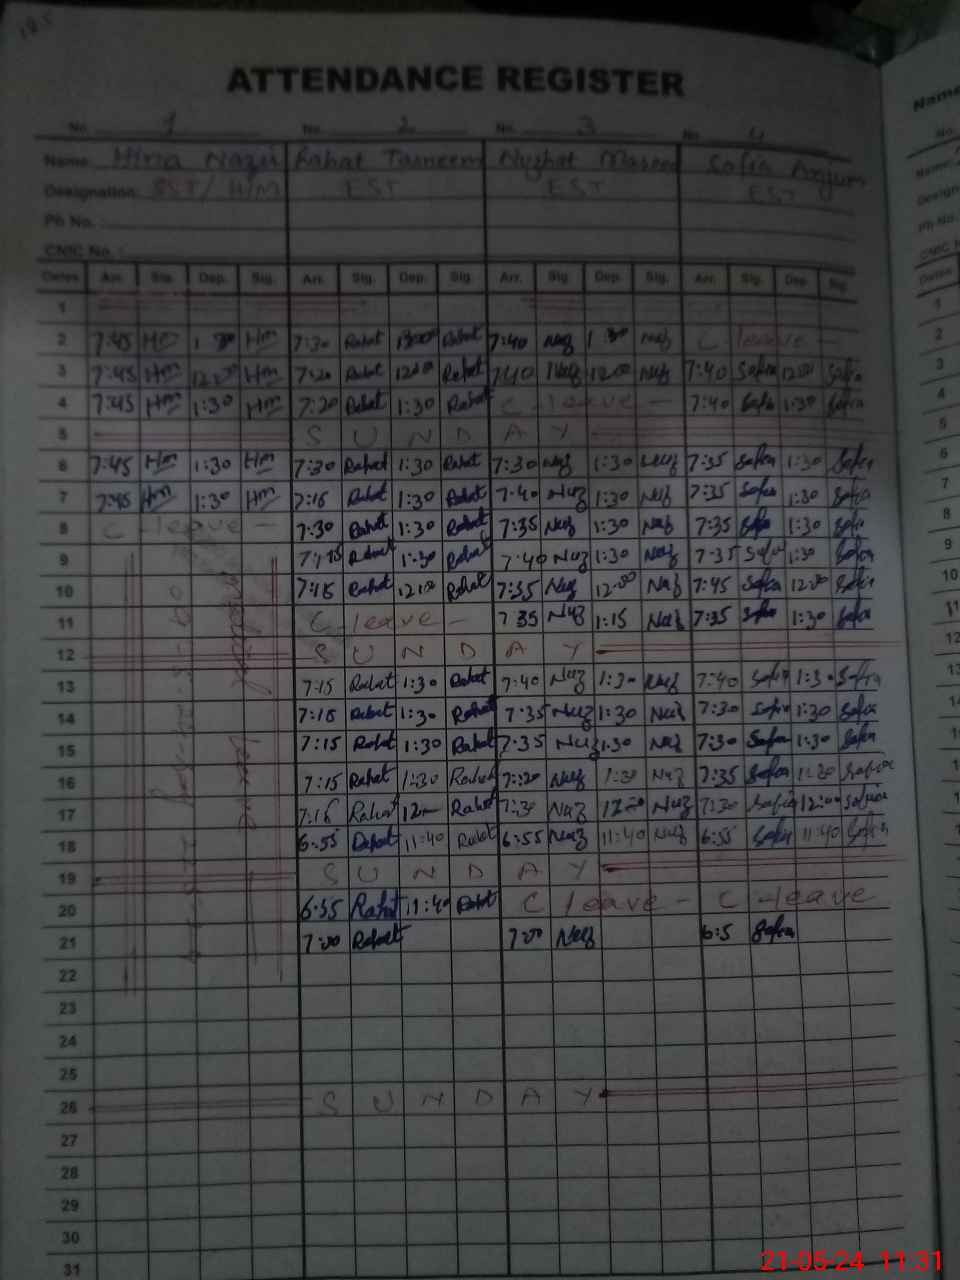 ATTENDANCE REGISTER
No. 1 No. 2 No. 3 No. 4
Name: Hina Nazir Rahat Tasneem Nuzhat Safia Anjum
Designation: SST/H/M EST EST EST
Ph No. :
CNIC No. :
Dates Arr. Sig. Dep. Sig. Arr. Sig. Dep. Sig. Arr. Sig. Dep. Sig. Arr. Sig. Dep. Sig.
1
2 7:45 Hm 1:30 Hm 7:30 Rahat Rahat 7:40 Nuz 1:30 Nuz C leave -
3 7:45 Hm 12:00 Hm 7:20 Rahat 12:00 Rahat 7:40 Nuz 12:00 Nuz 7:40 Safia 12:00 Safia
4 7:45 Hm 1:30 Hm 7:20 Rahat 1:30 Rahat C leave - 7:40 Safia 1:30 Safia
5 S U N D A Y
6 7:45 Hm 1:30 Hm 7:30 Rahat 1:30 Rahat 7:30 Nuz 1:30 Nuz 7:35 Safia 1:30 Safia
7 7:45 Hm 1:30 Hm 7:15 Rahat 1:30 Rahat 7:40 Nuz 1:30 Nuz 7:35 Safia 1:30 Safia
8 C leave - 7:30 Rahat 1:30 Rahat 7:35 Nuz 1:30 Nuz 7:35 Safia 1:30 Safia
9 7:15 Rahat 1:30 Rahat 7:40 Nuz 1:30 Nuz 7:35 Safia 1:30 Safia
10 7:15 Rahat 12:00 Rahat 7:35 Nuz 12:00 Nuz 7:45 Safia 12:00 Safia
11 C leave - 7:35 Nuz 1:15 Nuz 7:35 Safia 1:30 Safia
12 S U N D A Y
13 7:15 Rahat 1:30 Rahat 7:40 Nuz 1:30 Nuz 7:40 Safia 1:30 Safia
14 7:15 Rahat 1:30 Rahat 7:35 Nuz 1:30 Nuz 7:30 Safia 1:30 Safia
15 7:15 Rahat 1:30 Rahat 7:35 Nuz 1:30 Nuz 7:30 Safia 1:30 Safia
16 7:15 Rahat 1:30 Rahat 7:20 Nuz 1:30 Nuz 7:35 Safia 11:30 Safia
17 7:15 Rahat 12 Rahat 7:30 Nuz 12:00 Nuz 7:30 Safia 12:00 Safia
18 6:55 Rahat 11:40 Rahat 6:55 Nuz 11:40 Nuz 6:55 Safia 11:40 Safia
19 S U N D A Y
20 6:55 Rahat 11:40 Rahat C leave - C leave
21 7:00 Rahat 7:00 Nuz 6:5 Safia
22
23
24
25
26 S U N D A Y
27
28
29
30
31
leave
Name
No.
Name
Ph No.
CNIC
Dates
1
2
3
4
5
6
7
8
9
10
11
12
21-05-24 11:31